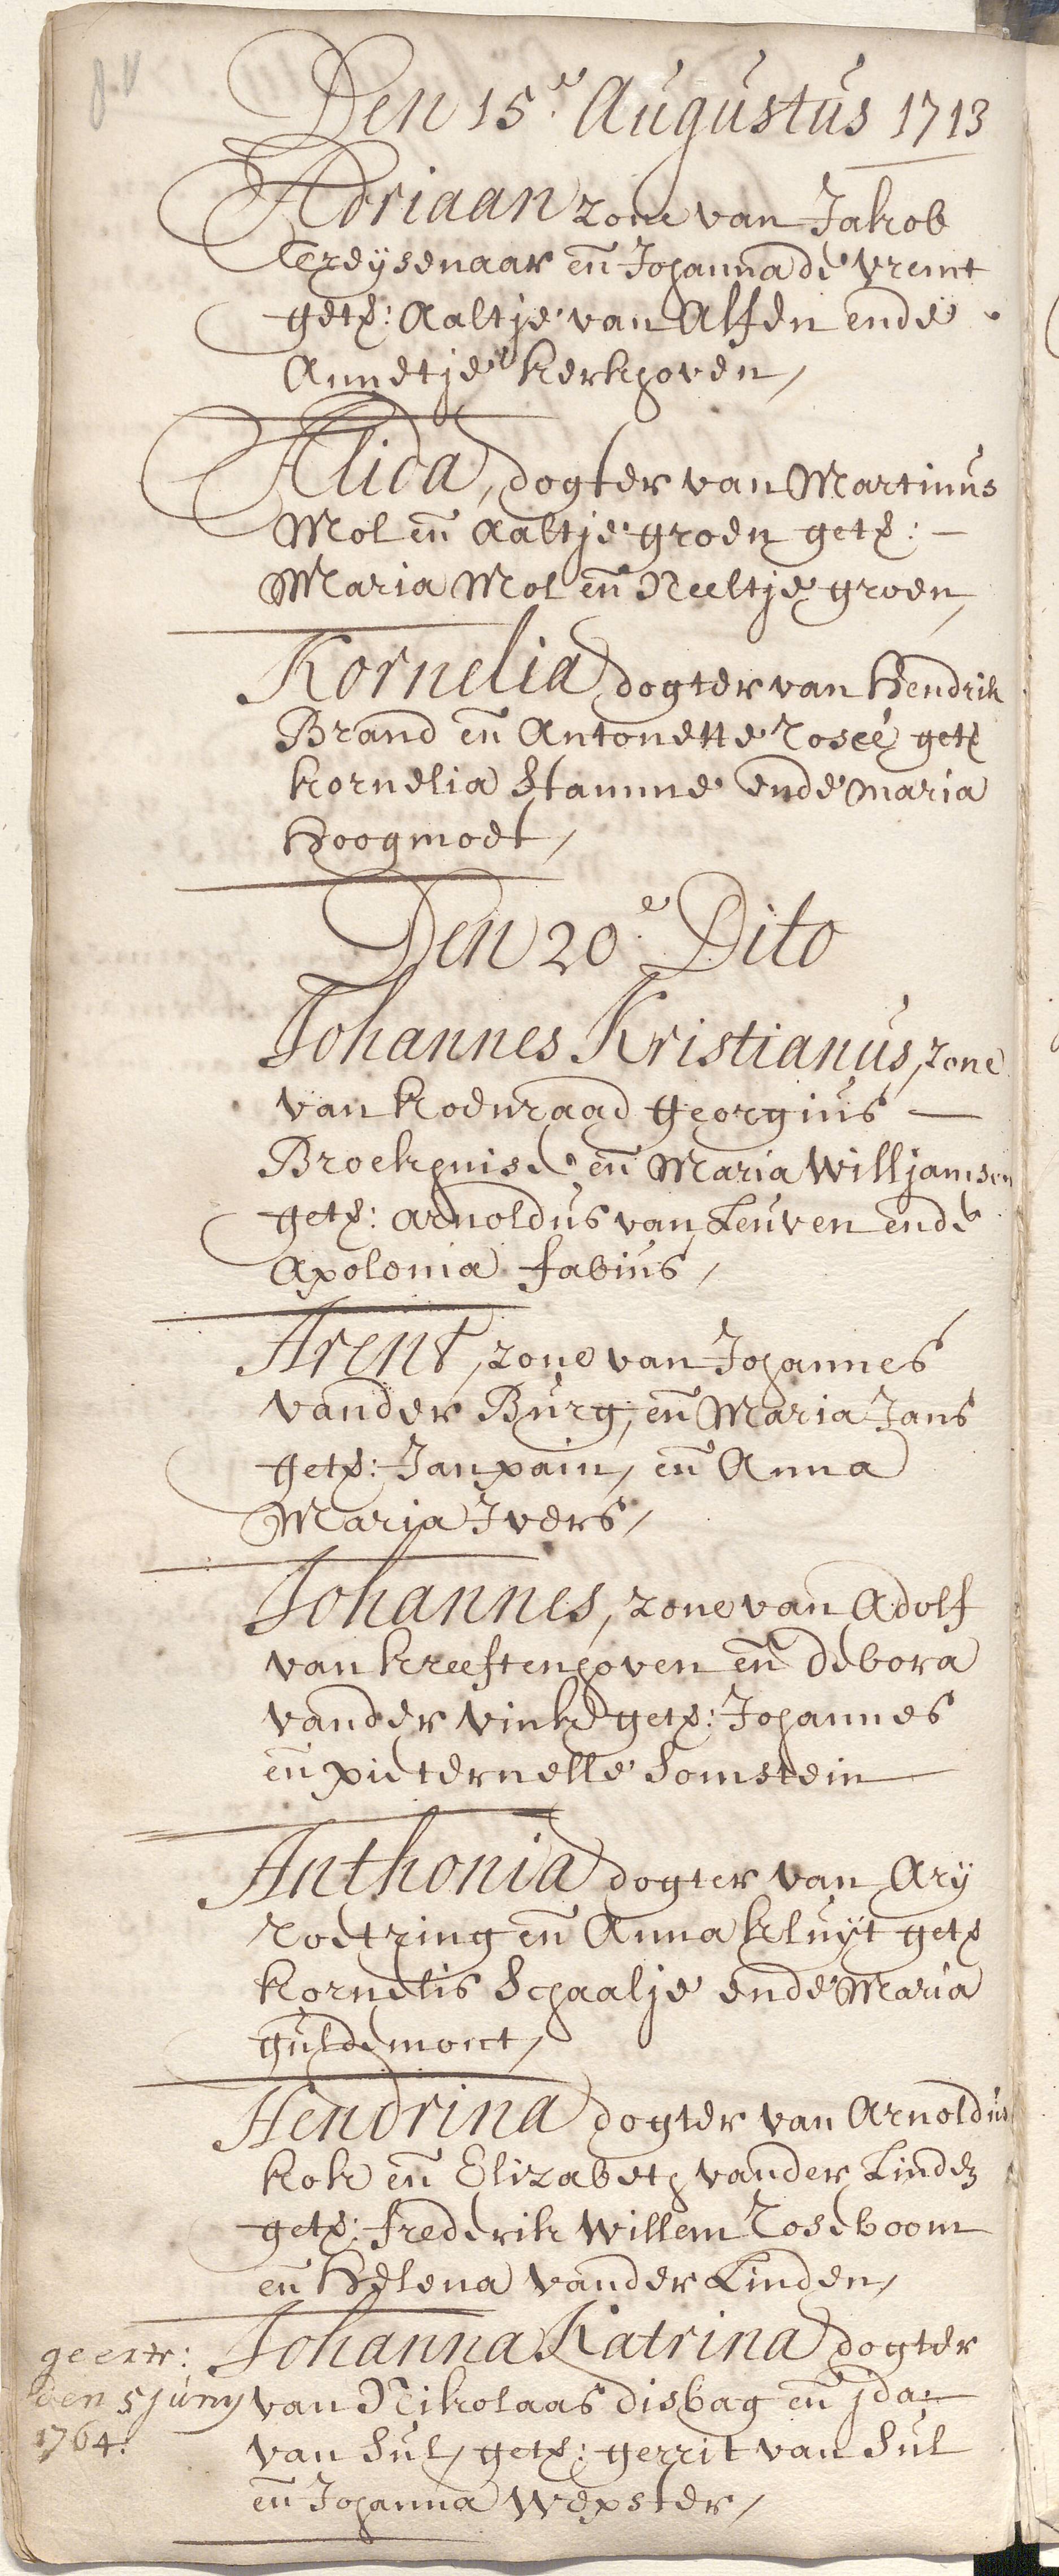 Den 15.e Augustus 1713
Adriaan zone van Jakob
Treysenaar en Johanna de Vremt
get: Aaltje van Alfen ende
Annetje Kerkhoven,
Alida, dogter van Martinus
Mol en Aaltje groen get: —
Maria Mol en Neeltje groen,
Kornelia dogter van Hendrik
Brand en Antonette Roseé get
kornelia Stamme ende maria
Hoogmoet,
Den 20.e Dito
Johannes Kristianus, zone
van Koenraad Georgius —
Broekhuise en Maria Willjamsen
get: arnoldus van Leuven ende
Apolonia fabius,
Arent, zone van Johannes
vander Burg, en Maria Jans
get: Jan pain, en Anna
Maria Ivers,
Johannes, zone van Adolf
van kreeftenhoven en debora
vander vink get: Johannes
en pieternelle Somstein
Anthonia dogter van Ary
Roetring en Anna kluyt get
kornelis Schaalje ende Maria
guldemont,
Hendrina dogter van Arnoldus
kok en Elizabeth vander Linden
get: frederik Willem Roseboom
en Helena vander Linden,
Johanna Katrina dogter
van Nikolaas disbag en jda
van Sul, get: gerrit van Sul
en Johanna Wepster,
geextr:
den 5 juny
1764.